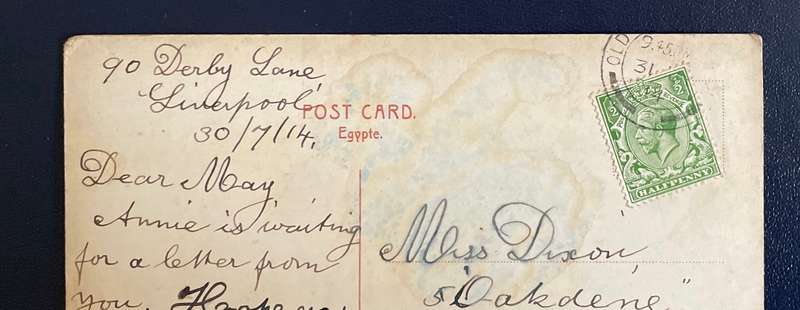 90 Derby Lane,
Liverpool,
30/7/14.
POST CARD.
Egypte.
Dear May
Annie is waiting
for a letter from
you.
OLD
9.45
31
½
½
HALFPENNY
Miss Dixon,
5 "Oakdene"